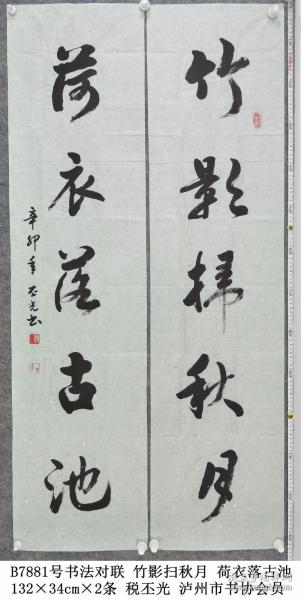 竹影掃秋月
荷衣落古池
辛卯年丕光书
B7881号书法对联 竹影扫秋月 荷衣落古池
132×34cm×2条 税丕光 泸州市书协会员